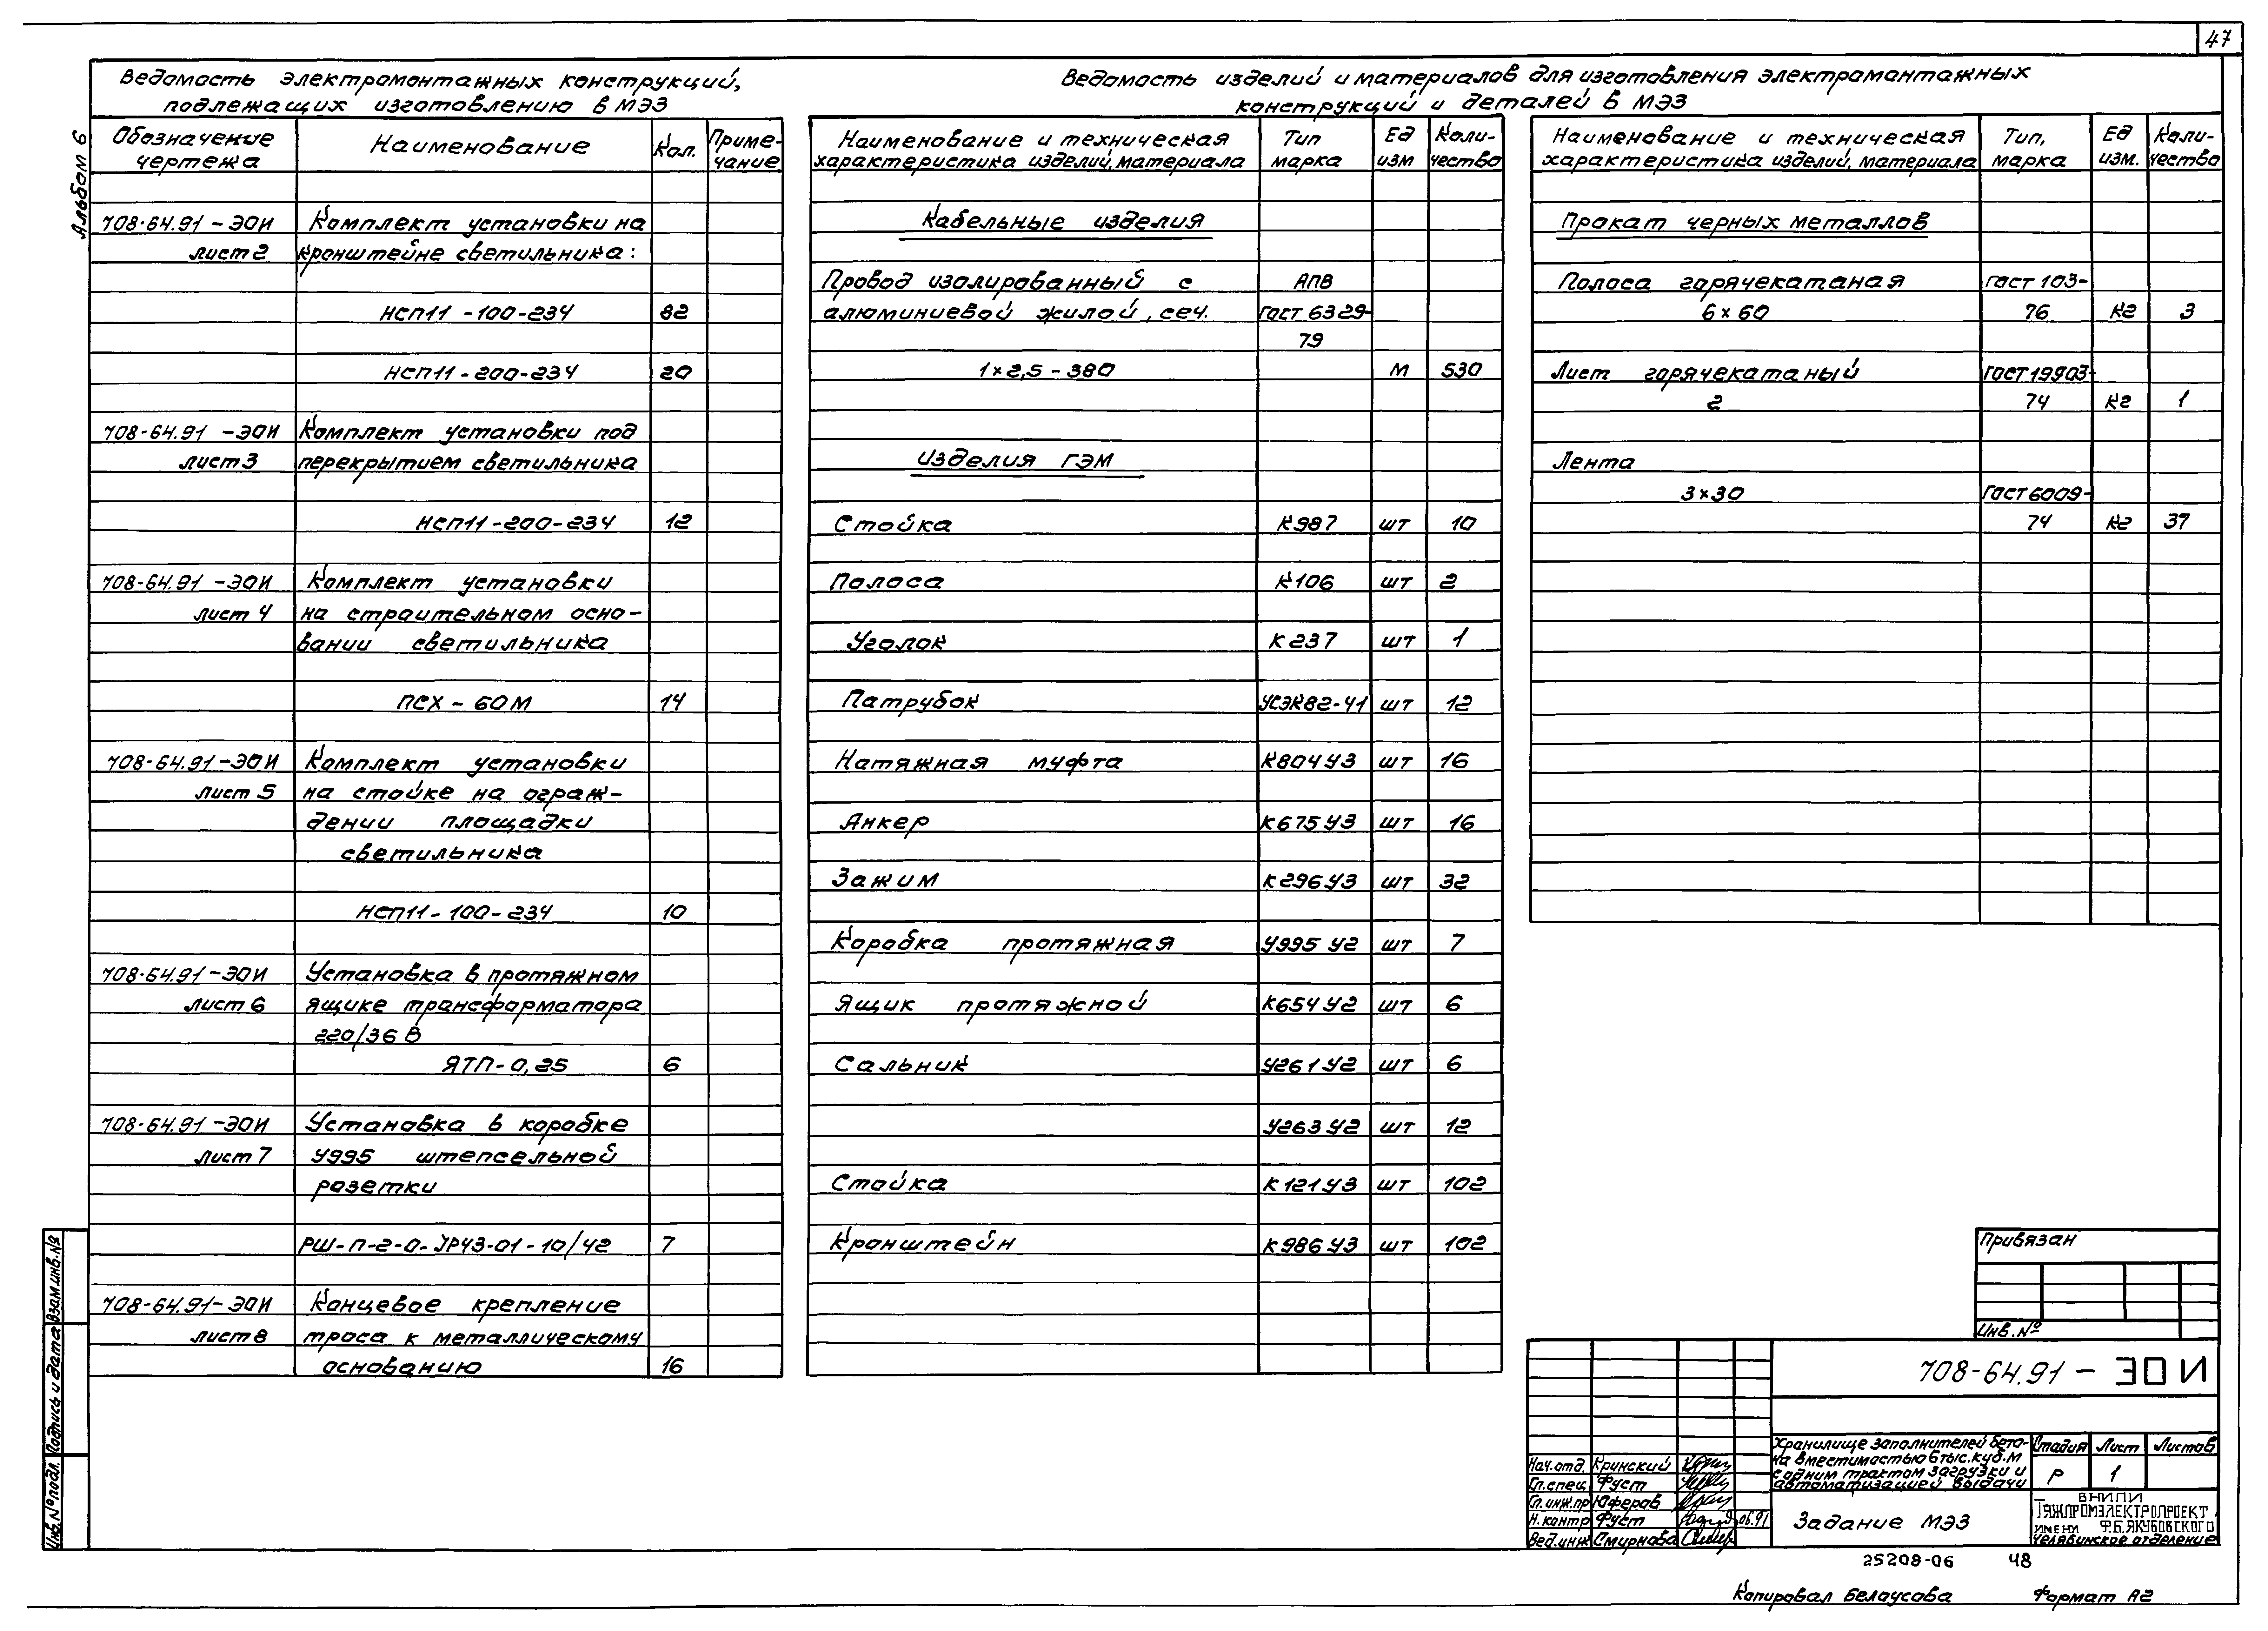 47
Альбом 6
Ведомость электромонтажных конструкций,
подлежащих изготовлению в МЭЗ
Обозначение чертежа | Наименование | Кол. | Примечание
708-64.91-ЭОИ Комплект установки на
лист 2 кронштейне светильника:
НСП11-100-234 82
НСП11-200-234 20
708-64.91-ЭОИ Комплект установки под
лист 3 перекрытием светильника
НСП11-200-234 12
708-64.91-ЭОИ Комплект установки
лист 4 на строительном осно-
вании светильника
ПСХ-60М 14
708-64.91-ЭОИ Комплект установки
лист 5 на стойке на ограж-
дении площадки
светильника
НСП11-100-234 10
708-64.91-ЭОИ Установка в протяжном
лист 6 ящике трансформатора
220/36 В
ЯТП-0,25 6
708-64.91-ЭОИ Установка в коробке
лист 7 У995 штепсельной
розетки
РШ-П-2-0-УР43-01-10/42 7
708-64.91-ЭОИ Концевое крепление
лист 8 троса к металлическому
основанию 16
Ведомость изделий и материалов для изготовления электромонтажных
конструкций и деталей в МЭЗ
Наименование и техническая характеристика изделий, материала | Тип марка | Ед изм | Коли-чество
Кабельные изделия
Провод изолированный с АПВ
алюминиевой жилой, сеч. ГОСТ 6329-
79
1×2,5-380 м 530
Изделия ГЭМ
Стойка К987 шт 10
Полоса К106 шт 2
Уголок К237 шт 1
Патрубок УСЭК82-41 шт 12
Натяжная муфта К804У3 шт 16
Анкер К675У3 шт 16
Зажим К296У3 шт 32
Коробка протяжная У995 У2 шт 7
Ящик протяжной К654У2 шт 6
Сальник У261У2 шт 6
У263У2 шт 12
Стойка К121У3 шт 102
Кронштейн К986У3 шт 102
Наименование и техническая характеристика изделий, материала | Тип, марка | Ед изм. | Коли-чество
Прокат черных металлов
Полоса горячекатаная ГОСТ 103-
6×60 76 кг 3
Лист горячекатаный ГОСТ 19903-
2 74 кг 1
Лента
3×30 ГОСТ 6009-
74 кг 37
Привязан
Инв. №
708-64.91-ЭОИ
Хранилище заполнителей бето-
на вместимостью 6 тыс. куб. м
с одним трактом загрузки и
автоматизацией выдачи
Стадия Лист Листов
Р 1
Нач. отд. Кринский
Гл. спец Фуст
Гл. инж. пр Юферов
Н. контр Фуст 06.91
Вед. инж Смирнова
Задание МЭЗ
ВНИПИ
ТЯЖПРОМЭЛЕКТРОПРОЕКТ
ИМЕНИ Ф.Б. ЯКУБОВСКОГО
Челябинское отделение
25208-06 48
Копировал Белоусова Формат А2
Инв. № подл. Подпись и дата Взам. инв. №